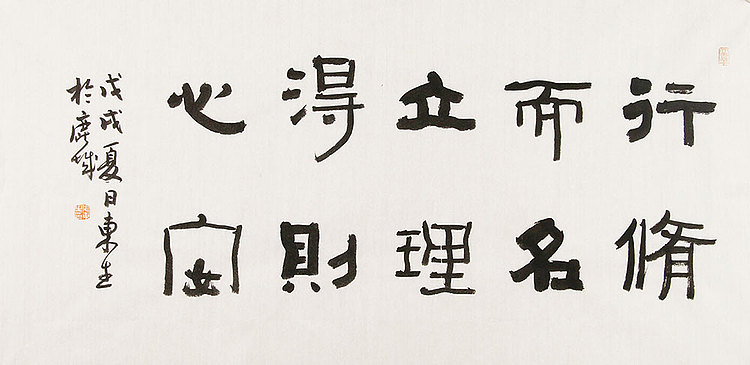 行脩
而名
立理
淂則
心安
戊戌夏日東生
於鹿城